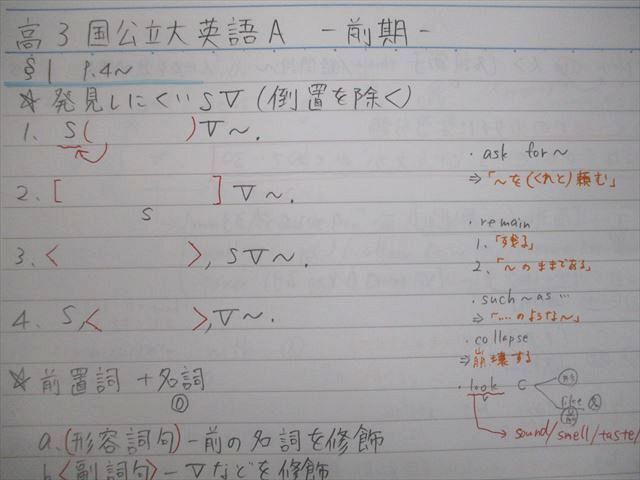 高3国公立大英語A －前期－
§1 P.4〜
☆発見しにくいSV (倒置を除く)
1. S( )V〜.
2. [ ] V〜.
S
3. < >, SV〜.
4. S,< >,V〜.
☆前置詞 +名詞
O
a.(形容詞句)－前の名詞を修飾
b.<副詞句>－Vなどを修飾
・ask for〜
⇒「〜を(くれと)頼む」
・remain
1.「残る」
2.「〜のままである」
・such〜as…
⇒「…のような〜」
・collapse
⇒崩壊する
・look C
V
like
→ sound/smell/taste/